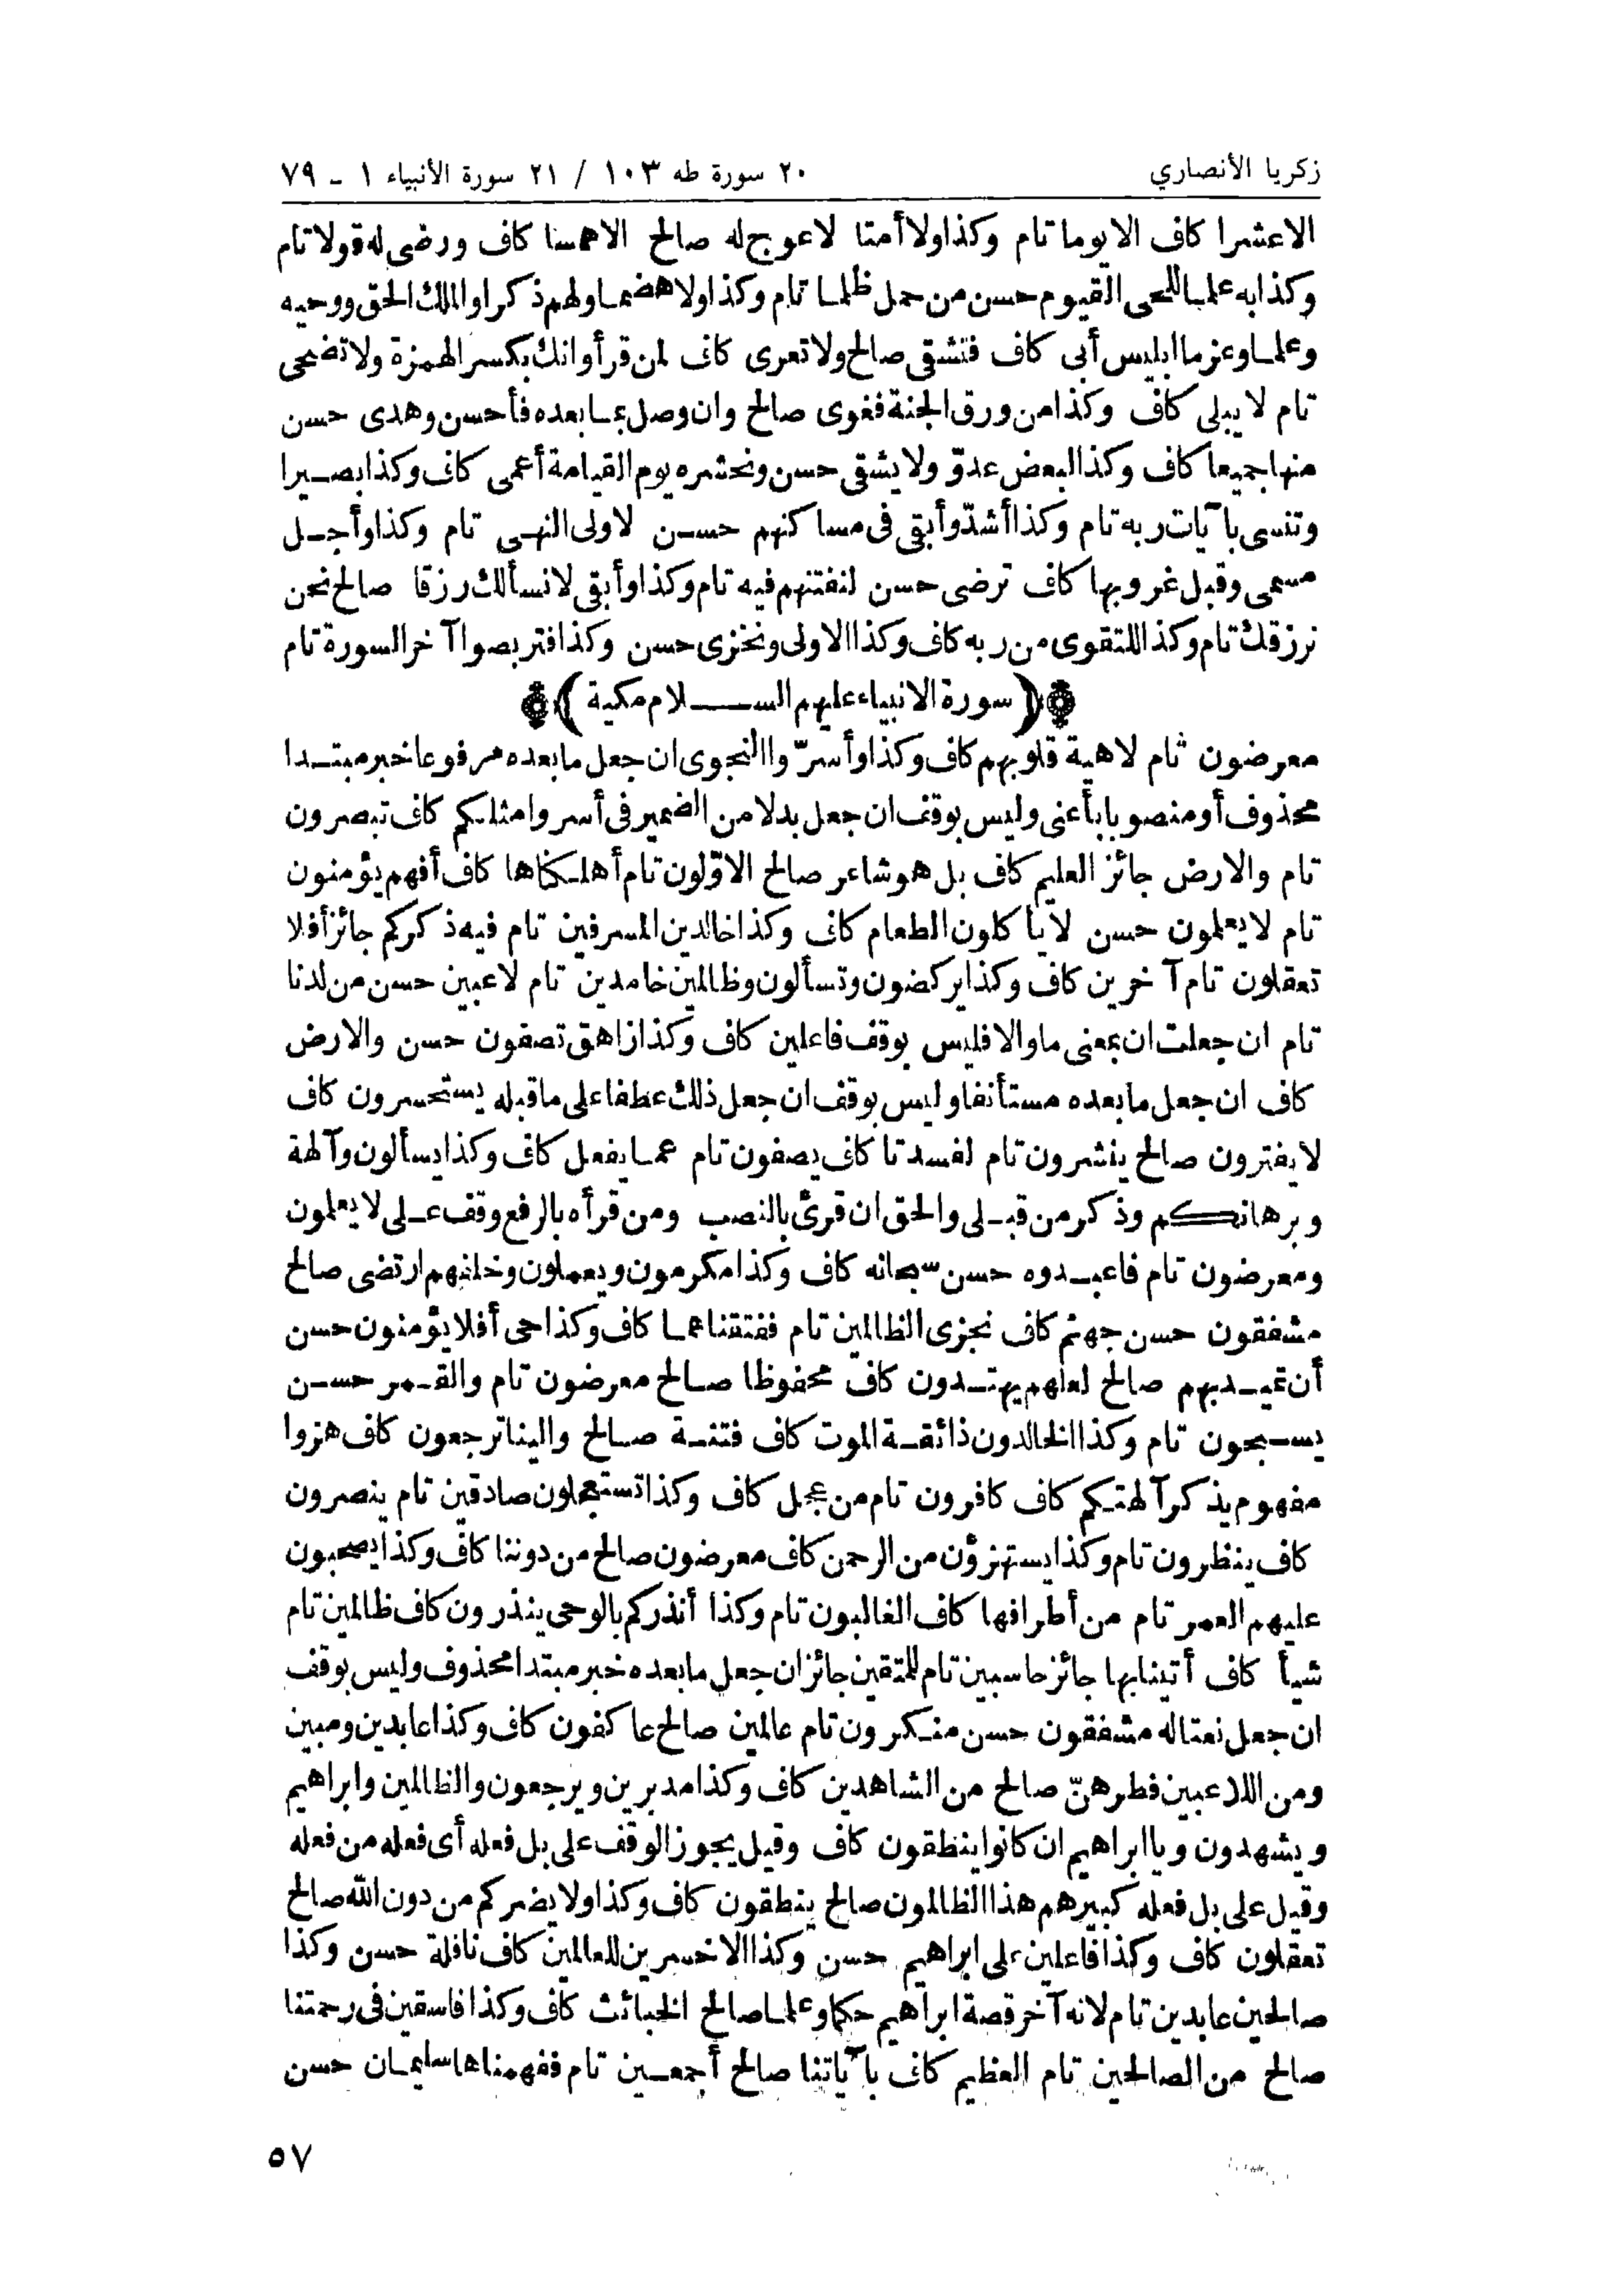 زكريا الأنصاري
٢٠ سورة طه ١٠٣ / ٢١ سورة الأنبياء ١ - ٧٩
الاعشرا كاف الايوما تام وكذا ولا أمتا لا عوج له صالح الاهمسا كاف ورضى له قولا تام
وكذا به علما للحى القيوم حسن من حمل ظلما تام وكذا ولا هضما ولهم ذكرا والملك الحق ووحيه
وعلما وعزما ابليس أبى كاف فتشقى صالح ولا تعرى كاف لمن قرأ وانك بكسر الهمزة ولا تضحى
تام لا يبلى كاف وكذا من ورق الجنة فغوى صالح وان وصل بما بعده فأحسن وهدى حسن
منها جميعا كاف وكذا لبعض عدوّ ولا يشقى حسن ونحشره يوم القيامة أعمى كاف وكذا بصيرا
وتنسى بآيات ربه تام وكذا أشدّ وأبقى فى مساكنهم حسن لاولى النهى تام وكذا وأجل
مسمى وقبل غروبها كاف ترضى حسن لنفتنهم فيه تام وكذا وأبقى لا نسألك رزقا صالح نحن
نرزقك تام وكذا للتقوى من ربه كاف وكذا الاولى ونخزى حسن وكذا فتربصوا آخر السورة تام
(سورة الانبياء عليهم السلام مكية)
معرضون تام لاهية قلوبهم كاف وكذا وأسرّوا النجوى ان جعل ما بعده مرفوعا خبر مبتدا
محذوف أو منصوبا بأعنى وليس بوقف ان جعل بدلا من الضمير فى أسروا مثلكم كاف تبصرون
تام والارض جائز العليم كاف بل هو شاعر صالح الاوّلون تام أهلكناها كاف أفهم يؤمنون
تام لا يعلمون حسن لا يأكلون الطعام كاف وكذا خالدين المسرفين تام فيه ذكركم جائز أفلا
تعقلون تام آخرين كاف وكذا يركضون وتسألون وظالمين خامدين تام لاعبين حسن من لدنا
تام ان جعلت ان بمعنى ما والا فليس بوقف فاعلين كاف وكذا زاهق تصفون حسن والارض
كاف ان جعل ما بعده مستأنفا وليس بوقف ان جعل ذلك عطفا على ما قبله يستحسرون كاف
لا يفترون صالح ينشرون تام لفسدتا كاف يصفون تام عما يفعل كاف وكذا يسألون وآلهة
وبرهانكم وذكر من قبلى والحق ان قرئ بالنصب ومن قرأه بالرفع وقف على لا يعلمون
ومعرضون تام فاعبدوه حسن سبحانه كاف وكذا مكرمون ويعملون وخلفهم ارتضى صالح
مشفقون حسن جهنم كاف نجزى الظالمين تام ففتقناهما كاف وكذا حى أفلا يؤمنون حسن
أن تميد بهم صالح لعلهم يهتدون كاف محفوظا صالح معرضون تام والقمر حسن
يسبحون تام وكذا الخالدون ذائقة الموت كاف فتنة صالح والينا ترجعون كاف هزوا
مفهوم يذكر آلهتكم كاف كافرون تام من عجل كاف وكذا تستعجلون صادقين تام ينصرون
كاف ينظرون تام وكذا يستهزؤن من الرحمن كاف معرضون صالح من دوننا كاف وكذا يصحبون
عليهم العمر تام من أطرافها كاف الغالبون تام وكذا أنذركم بالوحى ينذرون كاف ظالمين تام
شيأ كاف أتينا بها جائز حاسبين تام للمتقين جائز ان جعل ما بعده خبر مبتدا محذوف وليس بوقف
ان جعل نعتا له مشفقون حسن منكرون تام عالمين صالح عاكفون كاف وكذا عابدين ومبين
ومن اللاعبين فطرهنّ صالح من الشاهدين كاف وكذا مدبرين ويرجعون والظالمين وابراهيم
ويشهدون ويا ابراهيم ان كانوا ينطقون كاف وقيل يجوز الوقف على بل فعله أى فعله من فعله
وقيل على بل فعله كبيرهم هذا الظالمون صالح ينطقون كاف وكذا ولا يضركم من دون الله صالح
تعقلون كاف وكذا فاعلين على ابراهيم حسن وكذا الاخسرين للعالمين كاف نافلة حسن وكذا
صالحين عابدين تام لانه آخر قصة ابراهيم حكما وعلما صالح الخبائث كاف وكذا فاسقين فى رحمتنا
صالح من الصالحين تام العظيم كاف بآياتنا صالح أجمعين تام ففهمناها سليمان حسن
٥٧